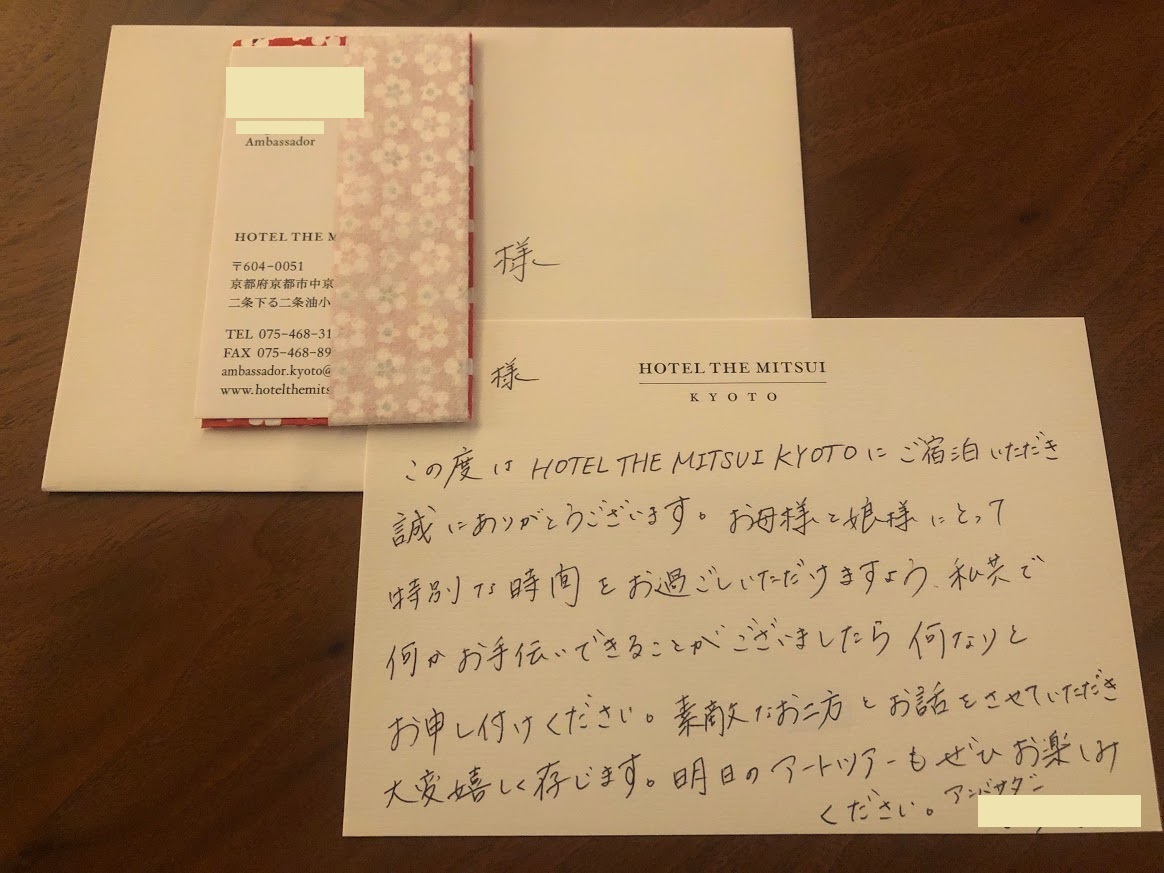 Ambassador
HOTEL THE M
〒604-0051
京都府京都市中京
二条下る二条油小
TEL 075-468-31
FAX 075-468-89
ambassador.kyoto@
www.hotelthemits
様
様
HOTEL THE MITSUI
KYOTO
この度は HOTEL THE MITSUI KYOTOに ご宿泊いただき
誠にありがとうございます。お母様と娘様にとって
特別な時間をお過ごしいただけますよう、私共で
何かお手伝いできることがございましたら 何なりと
お申し付けください。素敵なお二方とお話をさせていただき
大変嬉しく存じます。明日のアートツアーもぜひお楽しみ
ください。アンバサダー